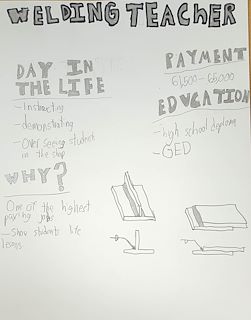 WELDING TEACHER
DAY IN
THE LIFE
- Instructing
- demonstrating
- Over seeing student
in the shop
WHY?
One of the highest
paying jobs
- Show students life
lesons
PAYMENT
61,500 - 66,000
EDUCATION
- high school diploma
- GED